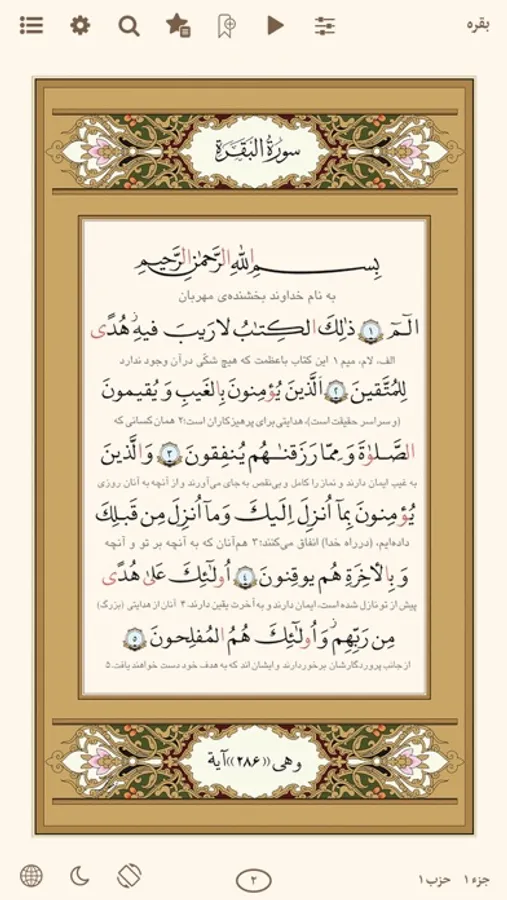 بقره
سورة البقرة
بسم الله الرحمن الرحيم
به نام خداوند بخشنده‌ی مهربان
الٓمٓ ۱ ذٰلِكَ الكِتٰبُ لا رَيبَ فيهِ هُدًى
الف، لام، میم ۱ این کتاب باعظمت که هیچ شکّی درآن وجود ندارد
لِلمُتَّقينَ ۲ اَلَّذينَ يُؤمِنونَ بِالغَيبِ وَ يُقيمونَ
(و سراسر حقیقت است)، هدایتی برای پرهیزکاران است؛ ۲ همان کسانی که
الصَّلوٰةَ وَ مِمّا رَزَقنٰهُم يُنفِقونَ ۳ وَ الَّذينَ
به غیب ایمان دارند و نماز را کامل و بی‌نقص به جای می‌آورند و از آنچه به آنان روزی
يُؤمِنونَ بِمآ اُنزِلَ اِلَيكَ وَ مآ اُنزِلَ مِن قَبلِكَ
داده‌ایم، (درراه خدا) انفاق می‌کنند؛ ۳ هم‌آنان که به آنچه بر تو و آنچه
وَ بِالاٰخِرَةِ هُم يوقِنونَ ٤ اُولٰٓئِكَ عَلىٰ هُدًى
پیش از تو نازل شده است، ایمان دارند و به آخرت یقین دارند. ۴ آنان از هدایتی (بزرگ)
مِن رَبِّهِم وَ اُولٰٓئِكَ هُمُ المُفلِحونَ ۵
از جانب پروردگارشان برخوردارند و ایشان اند که به هدف خود دست خواهند یافت. ۵
وهی ((۲۸۶)) آیة
جزء ۱ حزب ۱
۲